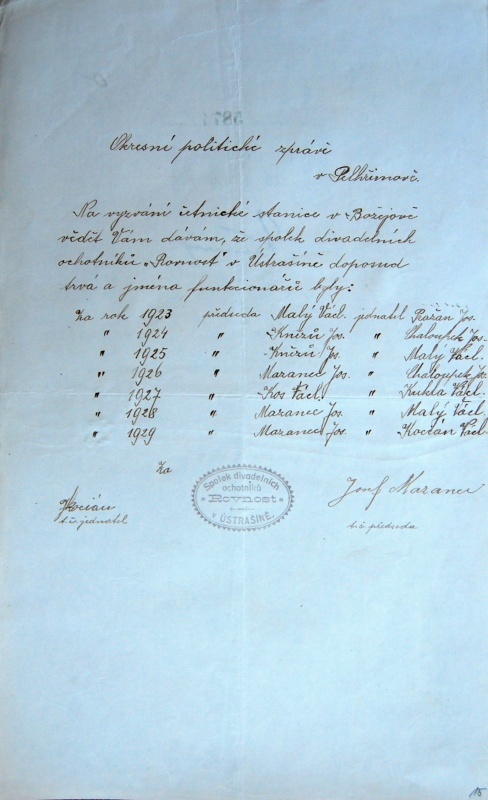 Okresní politické zprávě
v Pelhřimově.
Na vyzvání četnické stanice v Božejově
vědět Vám dávám, že spolek divadelních
ochotníků „Rovnost" v Ústrašíně doposud
trvá a jména funkcionářů byly:
Za rok 1923 předseda Malý Václ. jednatel Bařan Jos.
" 1924 " Knížů Jos. " Chaloupek Jos.
" 1925 " Knížů Jos. " Malý Václ.
" 1926 " Mazanec Jos. " Chaloupek Jos.
" 1927 " Kos Václ. " Kukla Václ.
" 1928 " Mazanec Jos. " Malý Václ.
" 1929 " Mazanec Jos. " Kocián Václ.
Za
Spolek divadelních
ochotníků
Rovnost
v ÚSTRAŠÍNĚ.
Josef Mazanec
t. č. předseda
VKocián
t. č. jednatel
15